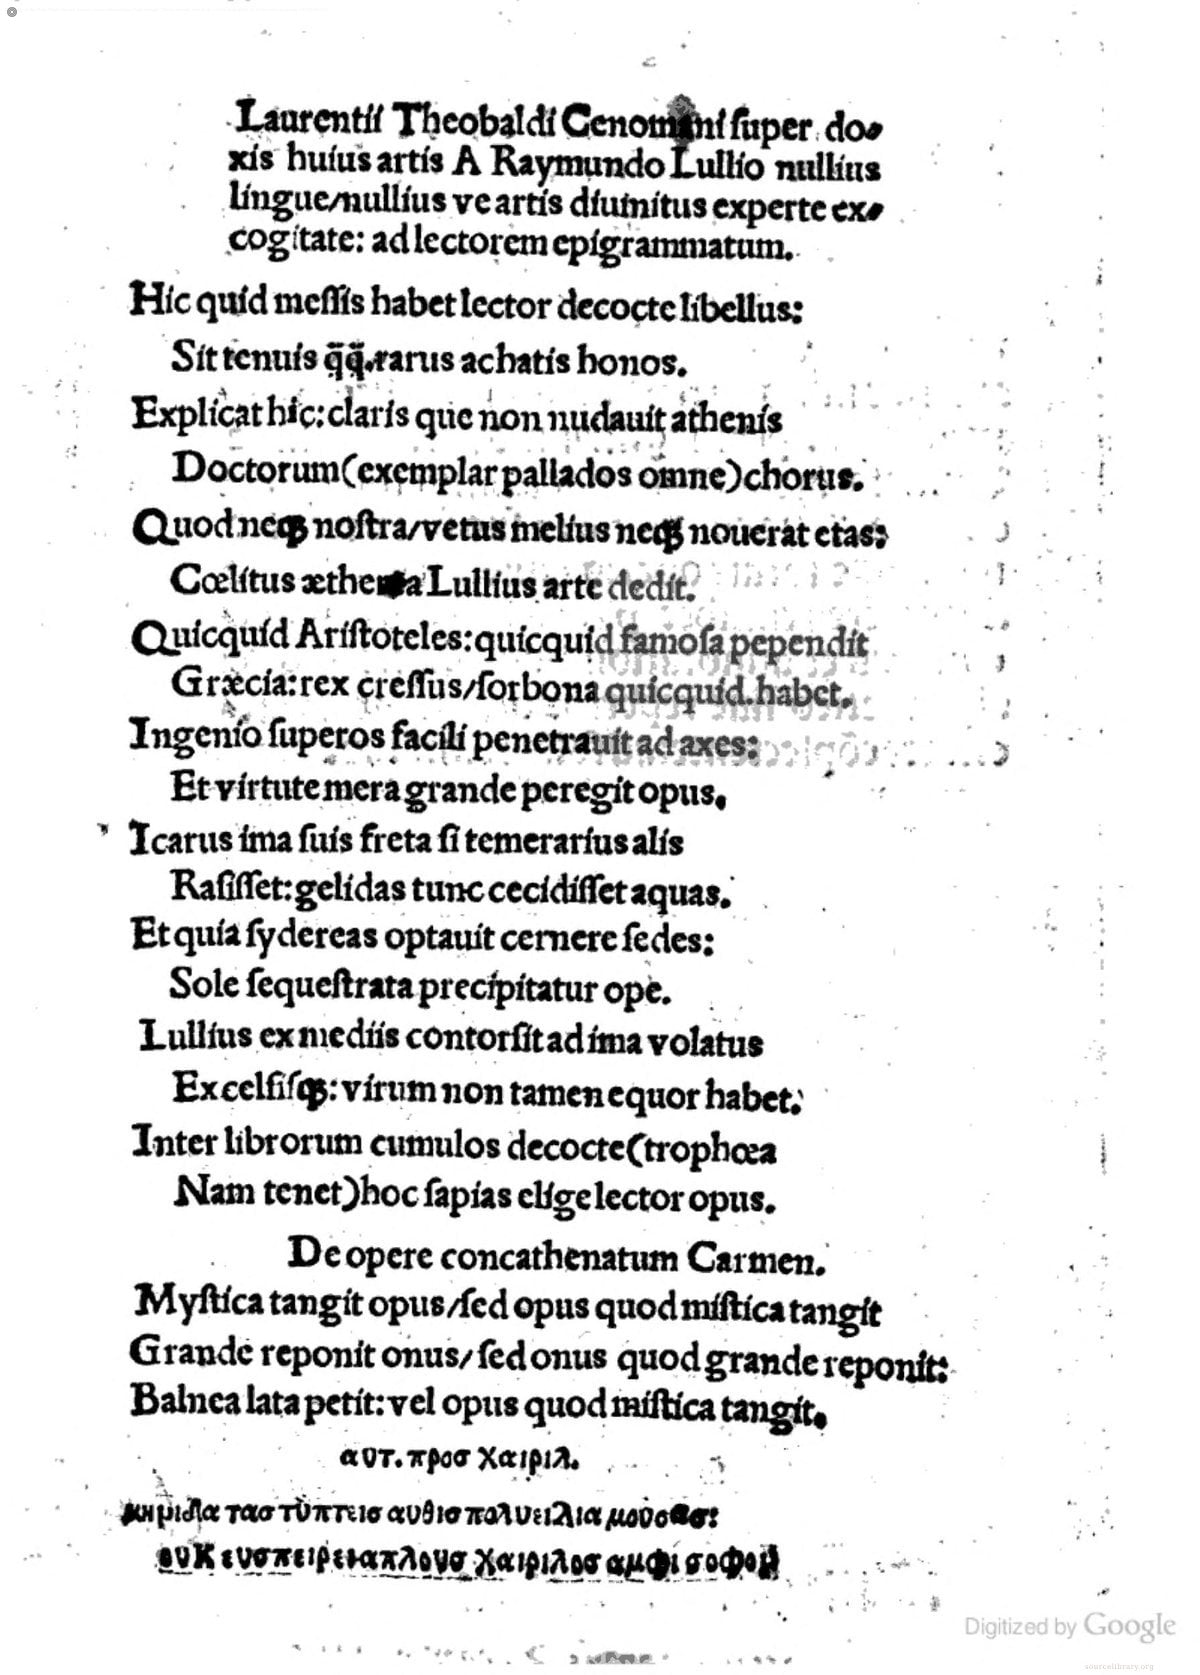 Laurentii Theobaldi Cenomani super do⸗
xis huius artis A Raymundo Lullio nullius
lingue/nullius ve artis diuinitus experte ex⸗
cogitate: ad lectorem epigrammatum.
Hic quid messis habet lector decocte libellus:
Sit tenuis q̄q̄.rarus achatis honos.
Explicat hic: claris que non nudauit athenis
Doctorum(exemplar pallados omne)chorus.
Quod neqꝫ nostra/vetus melius neqꝫ nouerat etas:
Cœlitus æthe a Lullius arte dedit.
Quicquid Aristoteles: quicquid famosa pependit
Græcia: rex cressus/sorbona quicquid.habet.
Ingenio superos facili penetrauit ad axes:
Et virtute mera grande peregit opus.
Icarus ima suis freta si temerarius alis
Rasisset: gelidas tunc cecidisset aquas.
Et quia sydereas optauit cernere sedes:
Sole sequestrata precipitatur ope.
Lullius ex mediis contorsit ad ima volatus
Excelsisqꝫ: virum non tamen equor habet.
Inter librorum cumulos decocte(trophœa
Nam tenet)hoc sapias elige lector opus.
De opere concathenatum Carmen.
Mystica tangit opus/sed opus quod mistica tangit
Grande reponit onus/sed onus quod grande reponit:
Balnea lata petit: vel opus quod mistica tangit.
αυτ. προσ χαιριλ.
τασ τύπτεισ αυθισ πολυειλια μούσασ:
ουκ ευσπειρει απλουσ χαιριλοσ αμφι σοφον
Digitized by Google
sourcelibrary.org